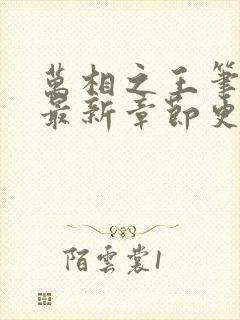 萬相之王筆
最新章節史
陌雲裳1